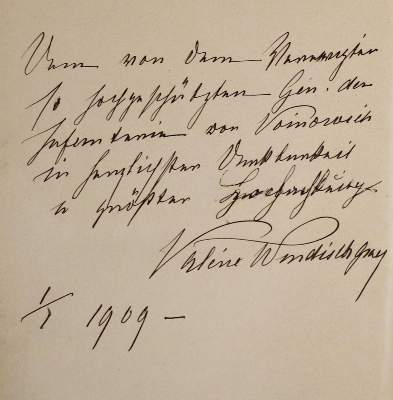 Dem von dem Verewigten
so hochgeschätzten Gen. der
Infanterie von Woinowich
in herzlichster Dankbarkeit
u größter Hochachtung
Valérie Windischgraetz
1/5 1909 —